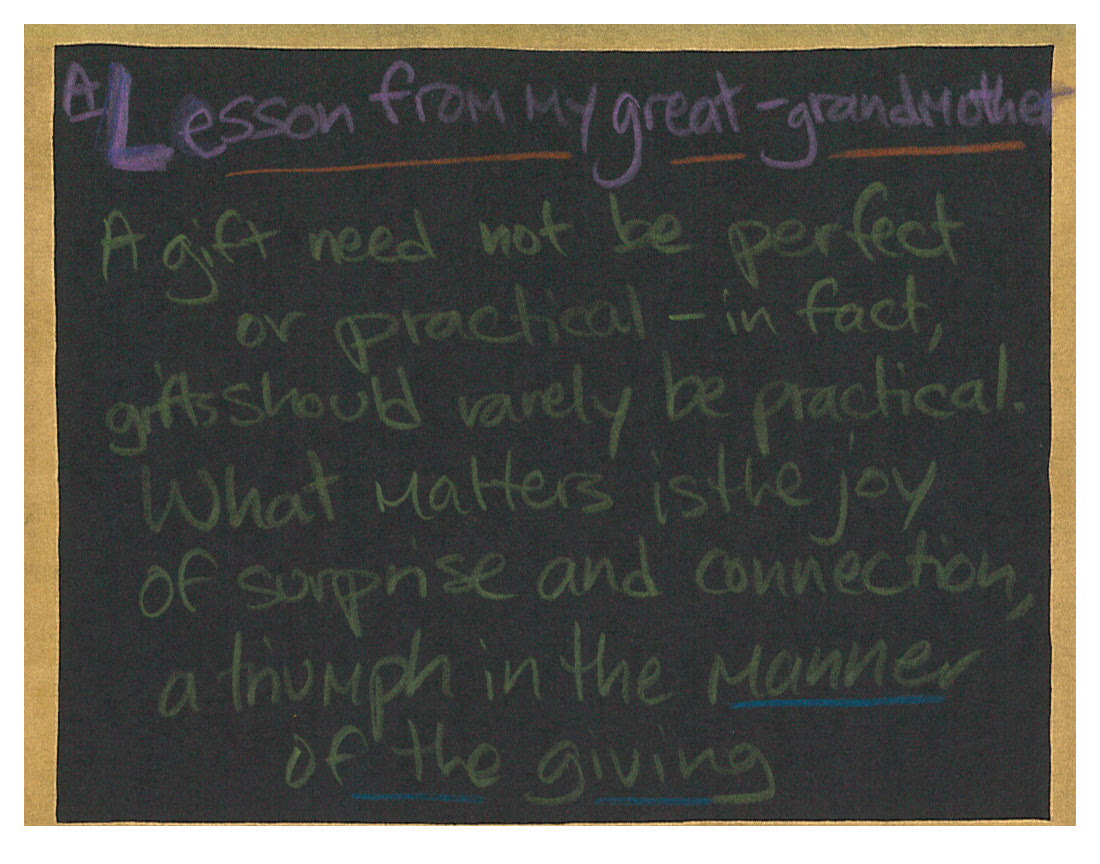 A Lesson from my great-grandmother
A gift need not be perfect
or practical - in fact,
gifts should rarely be practical.
What matters is the joy
of surprise and connection,
a triumph in the manner
of the giving